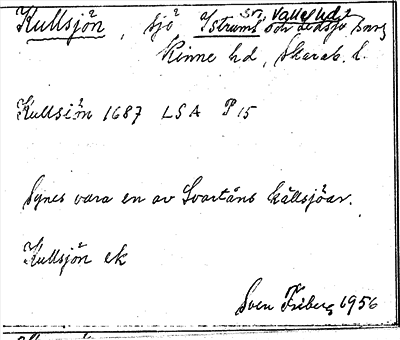 Kullsjön, sjö Ystrums sn, Valle hd, och Ledsjö sn,
Kinne hd, Skarab. l.
Kullsiön 1687 LSA P 15
Synes vara en av Svartåns källsjöar.
Kullsjön ek
Sven Friberg 1956